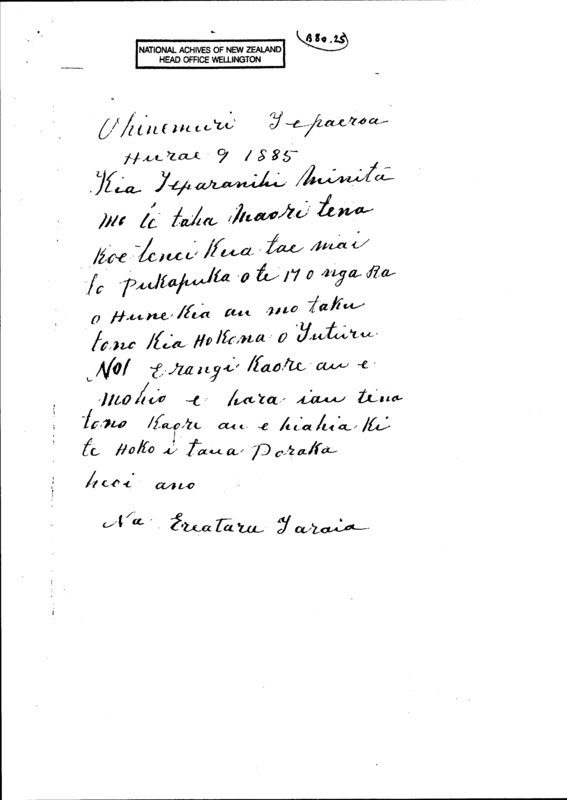 B80.25
NATIONAL ACHIVES OF NEW ZEALAND
HEAD OFFICE WELLINGTON
Ohinemuri Tepaeroa
Hurae 9 1885
Kia Teparanihi Minita
mo te taha Maori tena
koe tenei Kua tae mai
to pukapuka o te 17 o nga Ra
o Hune Kia au mo taku
tono Kia Hokona o Tuturu
No1 Erangi Kaore au e
mohio e hara iau tena
tono Kaore au e hiahia Ki
te Hoko i taua Poraka
heoi ano
Na Ereataru Taraia